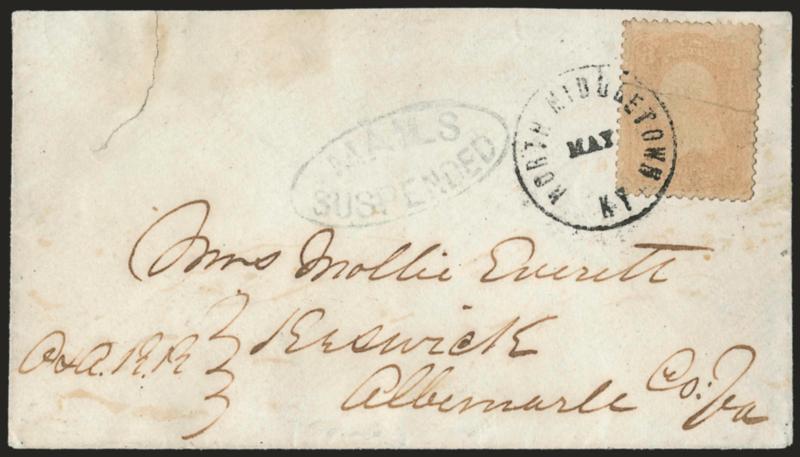 MAILS
SUSPENDED
NORTH MIDDLETOWN
MAY
KY.
Mrs Mollie Everett
Keswick
O & A. R. R
Albemarle Co: Va